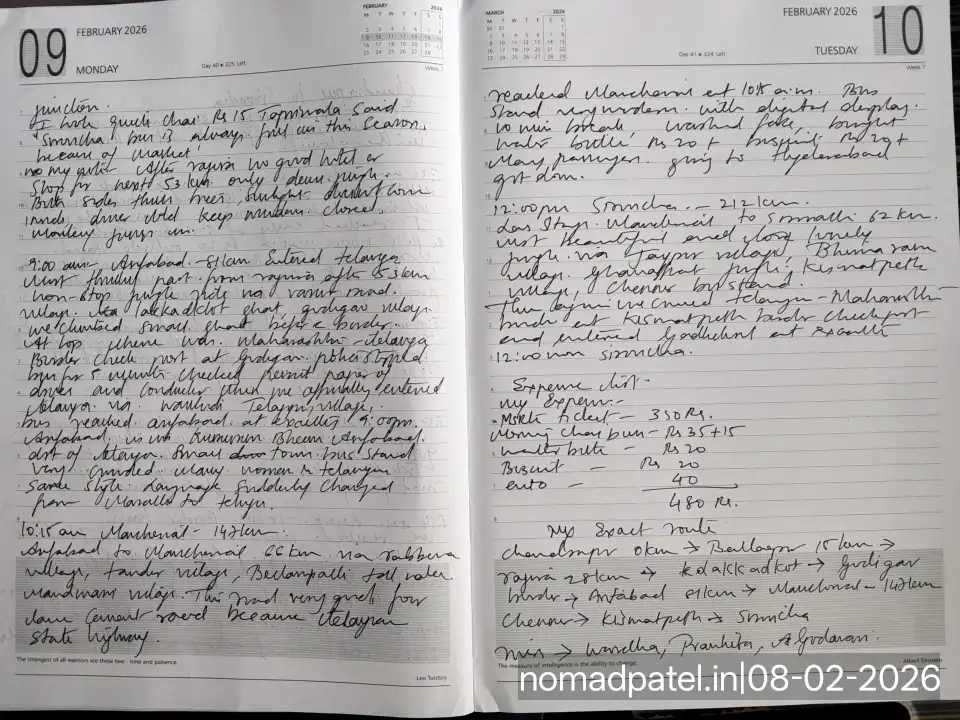 09
FEBRUARY 2026
MONDAY
Day 40 ★ 325 Left
FEBRUARY 2026
M T W T F S S
Week 7
junction.
I took quick chai Rs 15 Tapriwala Said
"Sironcha bus is always full in this Season,
because of market'
After rajura no good hotel or
Shop for next 53 km. only deum jungle.
Both sides thick trees, Sunlight doesn't come
inside, driver told keep window closed,
Monkey jumps in.
9:00 am Asifabad - 81km Entered telangana
Most thrilled part from rajura after 53 km
non-stop jungle ride via road.
village. lakkadkot ghat, village
we climbed small ghat before border.
At top there was Maharashtra - telangana
Border check post at . police stopped
bus for 5 minutes checked permit paper of
driver and conductor then we officially entered
telangana via wankidi village,
bus reached asifabad at exactly 9:00pm.
Asifabad is in Kumuram Bheem Asifabad.
dist of telangana. Small town bus stand
very crowded many women in telangana
Saree Style. Language Suddenly Changed
from Marathi to telugu.
10:15 am Mancherial - 147km.
Asifabad to Mancherial 66 km via rabbena
village, tandur village, Bellampalli
Mandamarri village. This road very good four
lane Cement road because telangana
State highway.
The strongest of all warriors are these two - time and patience.
- Leo Tolstoy
MARCH 2026
M T W T F S S
Day 41 ★ 324 Left
FEBRUARY 2026
TUESDAY
10
Week 7
reached Mancherial at 10:15 a.m. Bus
Stand very modern with digital display.
10 min break, washed face, bought
water bottle Rs 20 + biscuit Rs 20+
Many passenger going to Hyderabad
got down.
12:00pm Sironcha - 212 km.
Last Stage Mancherial to 62 km.
most beautiful and lonely
jungle via Jaipur village, Bhimaram
village, jungle, Kismatpeth
village, Chennur bus stand.
Then again we crossed telangana - Maharashtra
border at Kismatpeth border checkpost
and entered Gadchiroli at Exactly
12:00 noon sironcha.
Expense list -
my Expense:-
MSRTC ticket - 350 Rs.
Morning Chai bun - Rs 35+15
water bottle - Rs 20
Biscuit - Rs 20
auto - 40
480 Rs.
My Exact route
Chandrapur 0 km → Ballarpur 15 km →
rajura 28 km → lakkadkot →
border → Asifabad 81 km → Mancherial - 147km
Chennur → Kismatpeth → Sironcha
→ Wardha, Pranhita, Godavari.
The measure of intelligence is the ability to change.
Albert Einstein
nomadpatel.in|08-02-2026